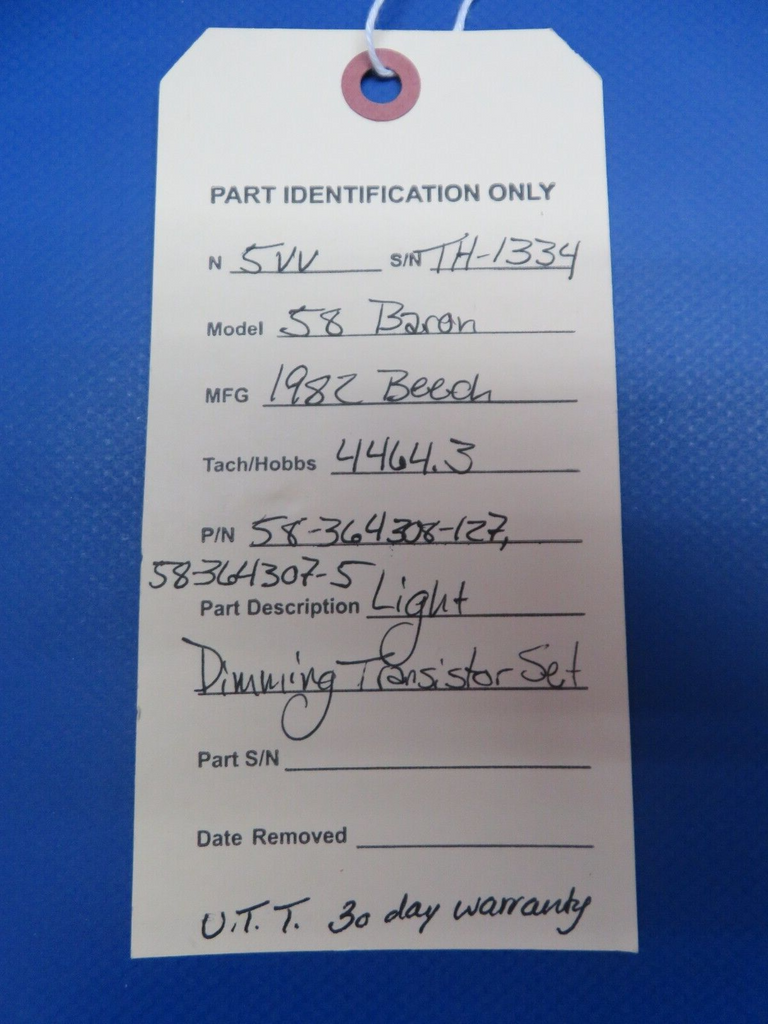 PART IDENTIFICATION ONLY
N 5VV S/N TH-1334
Model 58 Baron
MFG 1982 Beech
Tach/Hobbs 4464.3
P/N 58-364308-127,
58-364307-5
Part Description Light
Dimming Transistor Set
Part S/N
Date Removed
U.T.T. 30 day warranty